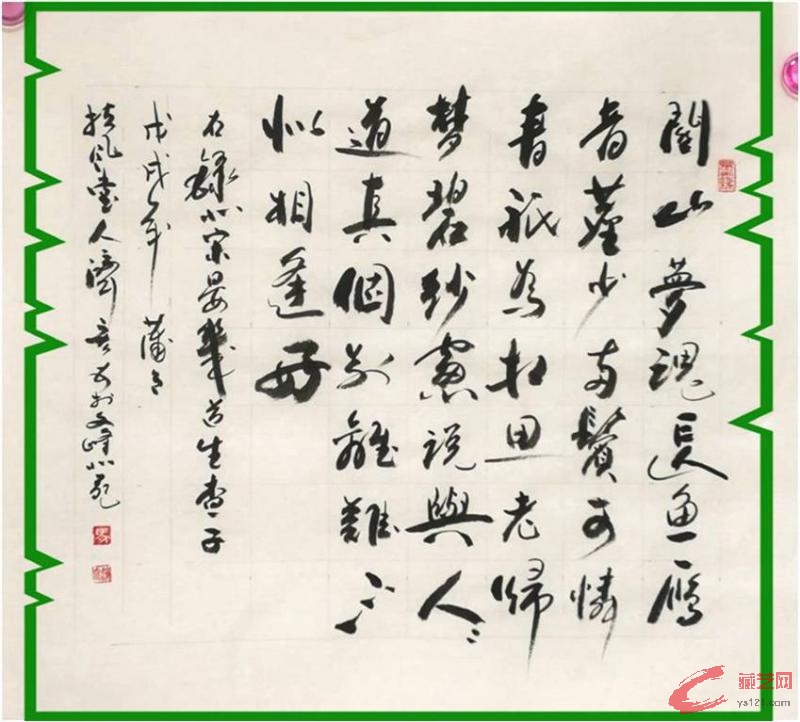 關山夢魂長魚雁
音塵少兩鬢可憐
青祇為相思老歸
梦碧紗窗說與人〻
道真個別離難不
似相逢好
右錄北宋晏幾道生查子
戊戌年 蒲月
扶風堂人濟 書於文峰北苑
藏艺网
ys121.com